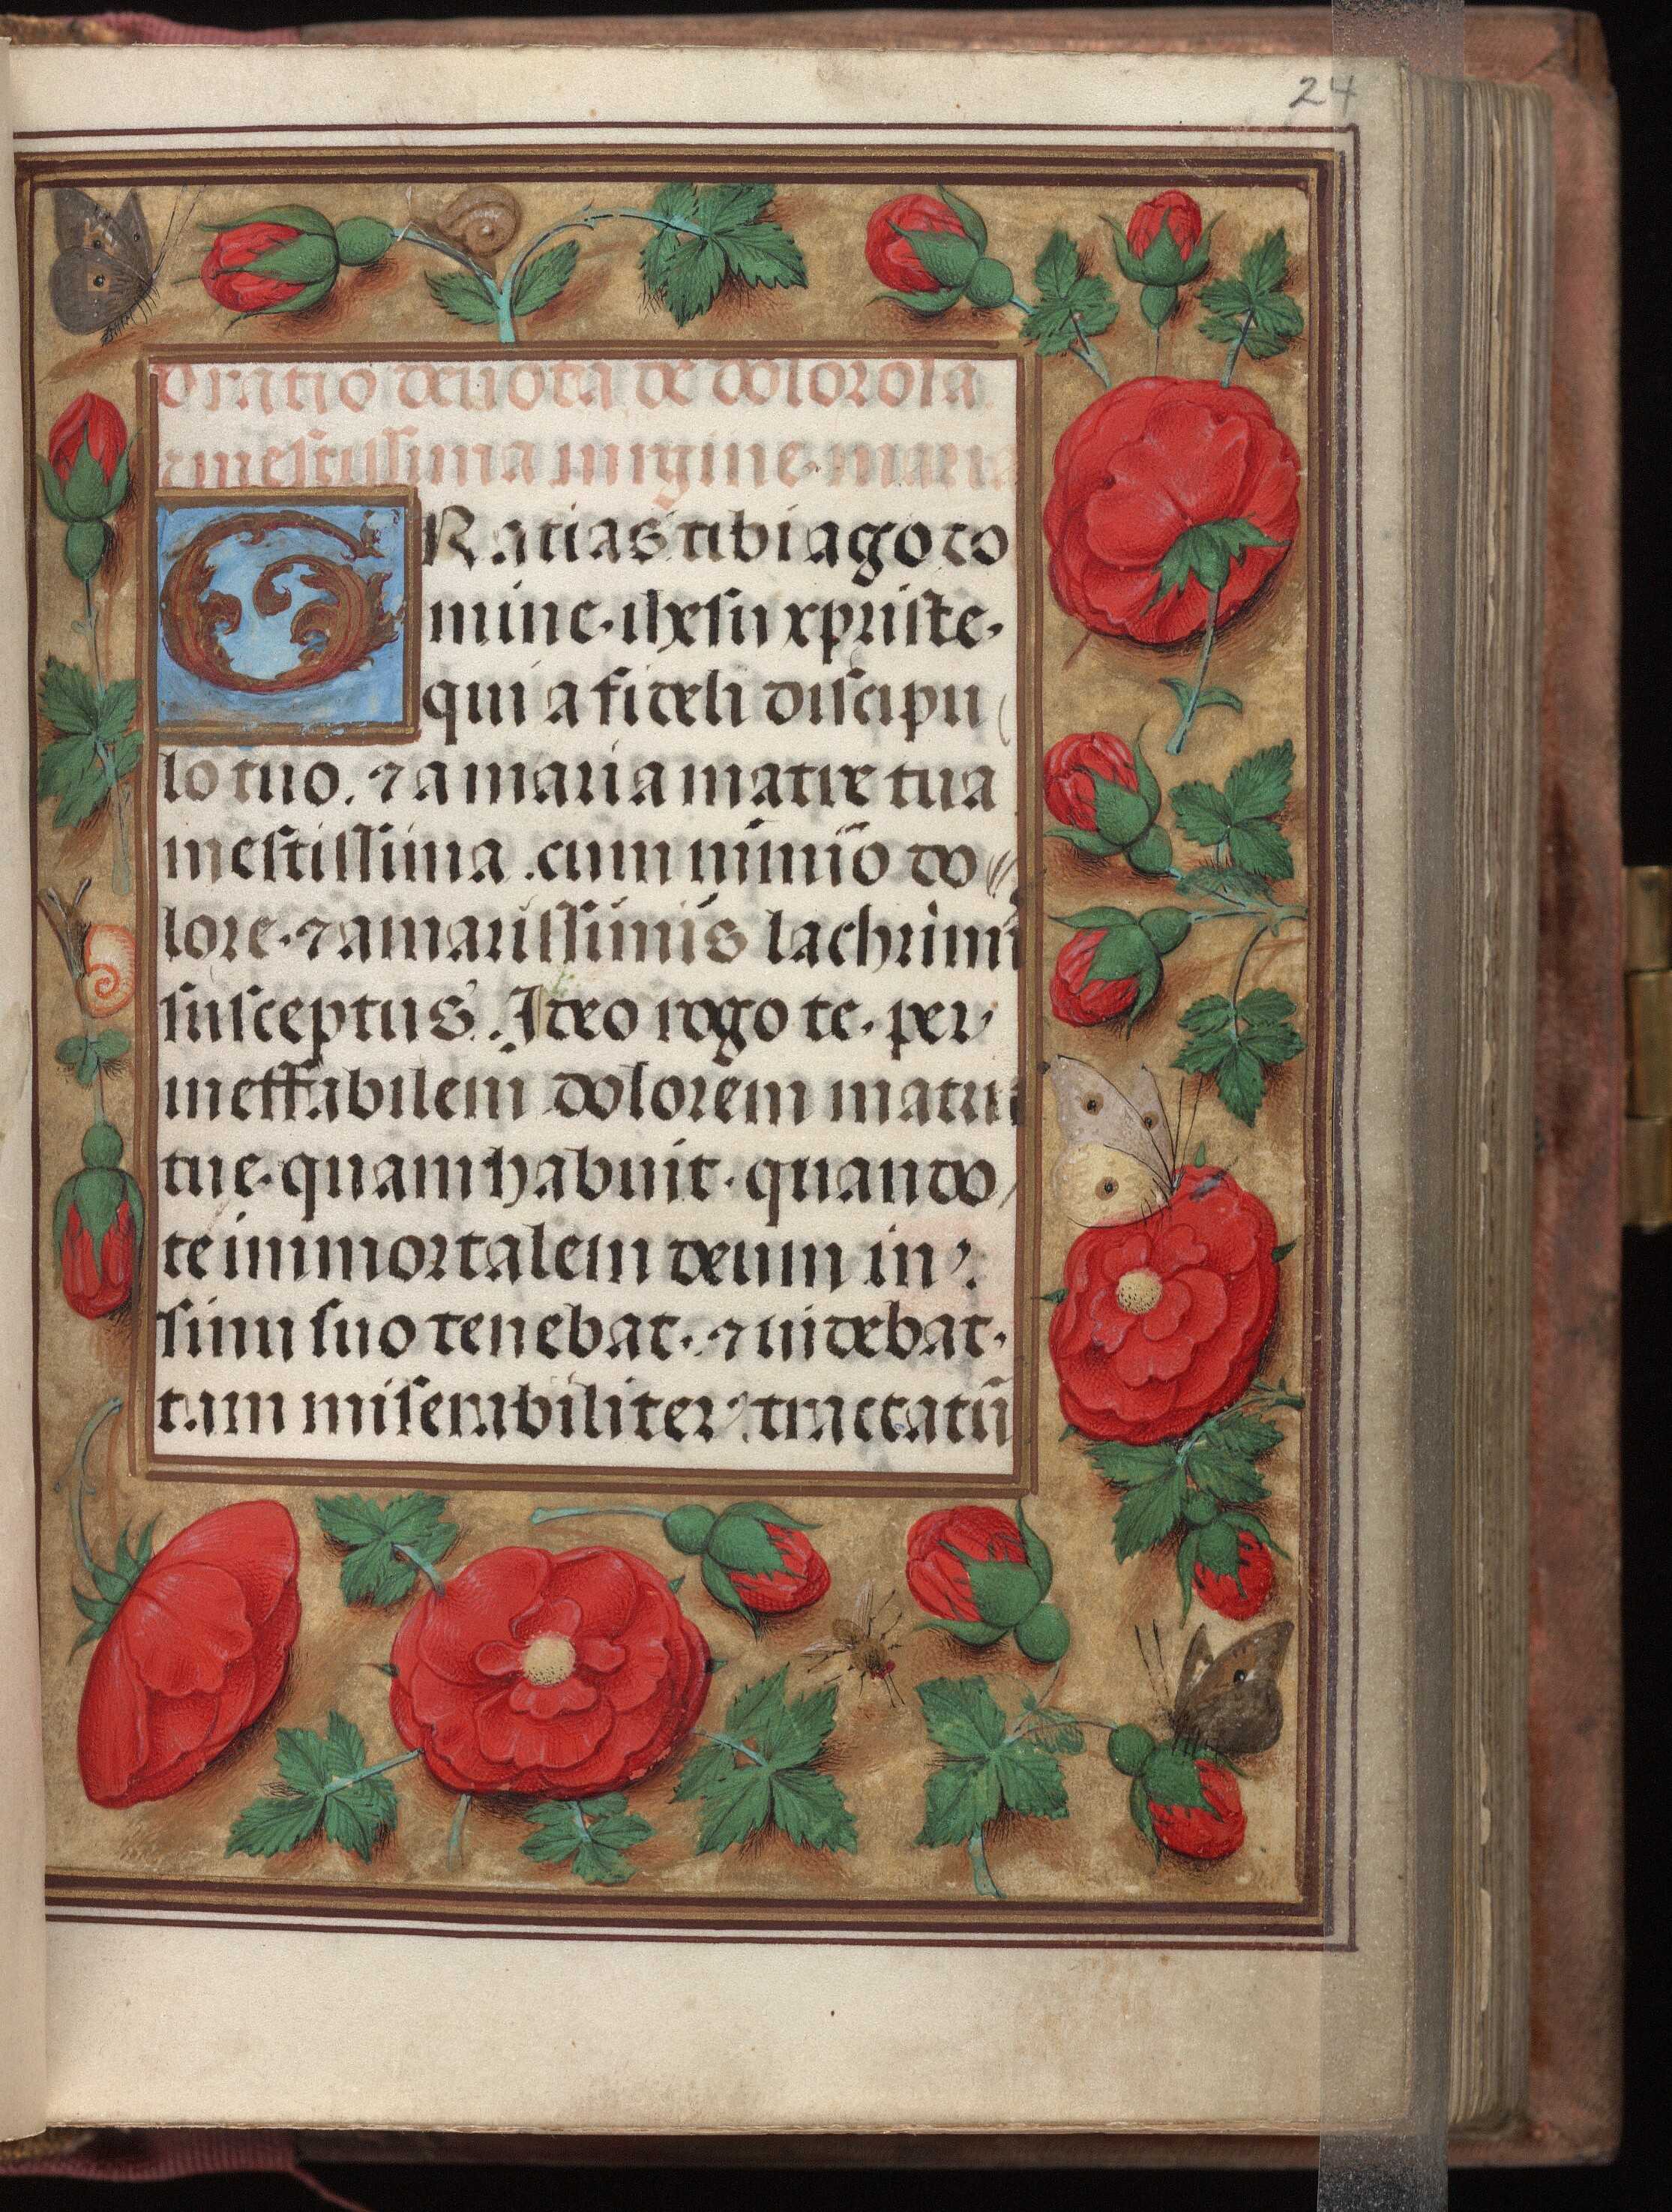 24
Oratio deuota de dolorosa
⁊ mestissima uirgine. maria
GRatias tibi ago do
mine. ihesu xpriste.
qui a fideli discipu
lo tuo. ⁊ a maria matre tua
mestissima. cum nimio do
lore. ⁊ amarissimis lachrimi
susceptus. Ideo rogo te. per
ineffabilem dolorem matri
tue. quam habuit. quando
te immortalem deum in
sinu suo tenebat. ⁊ uidebat.
tam miserabiliter tractatū